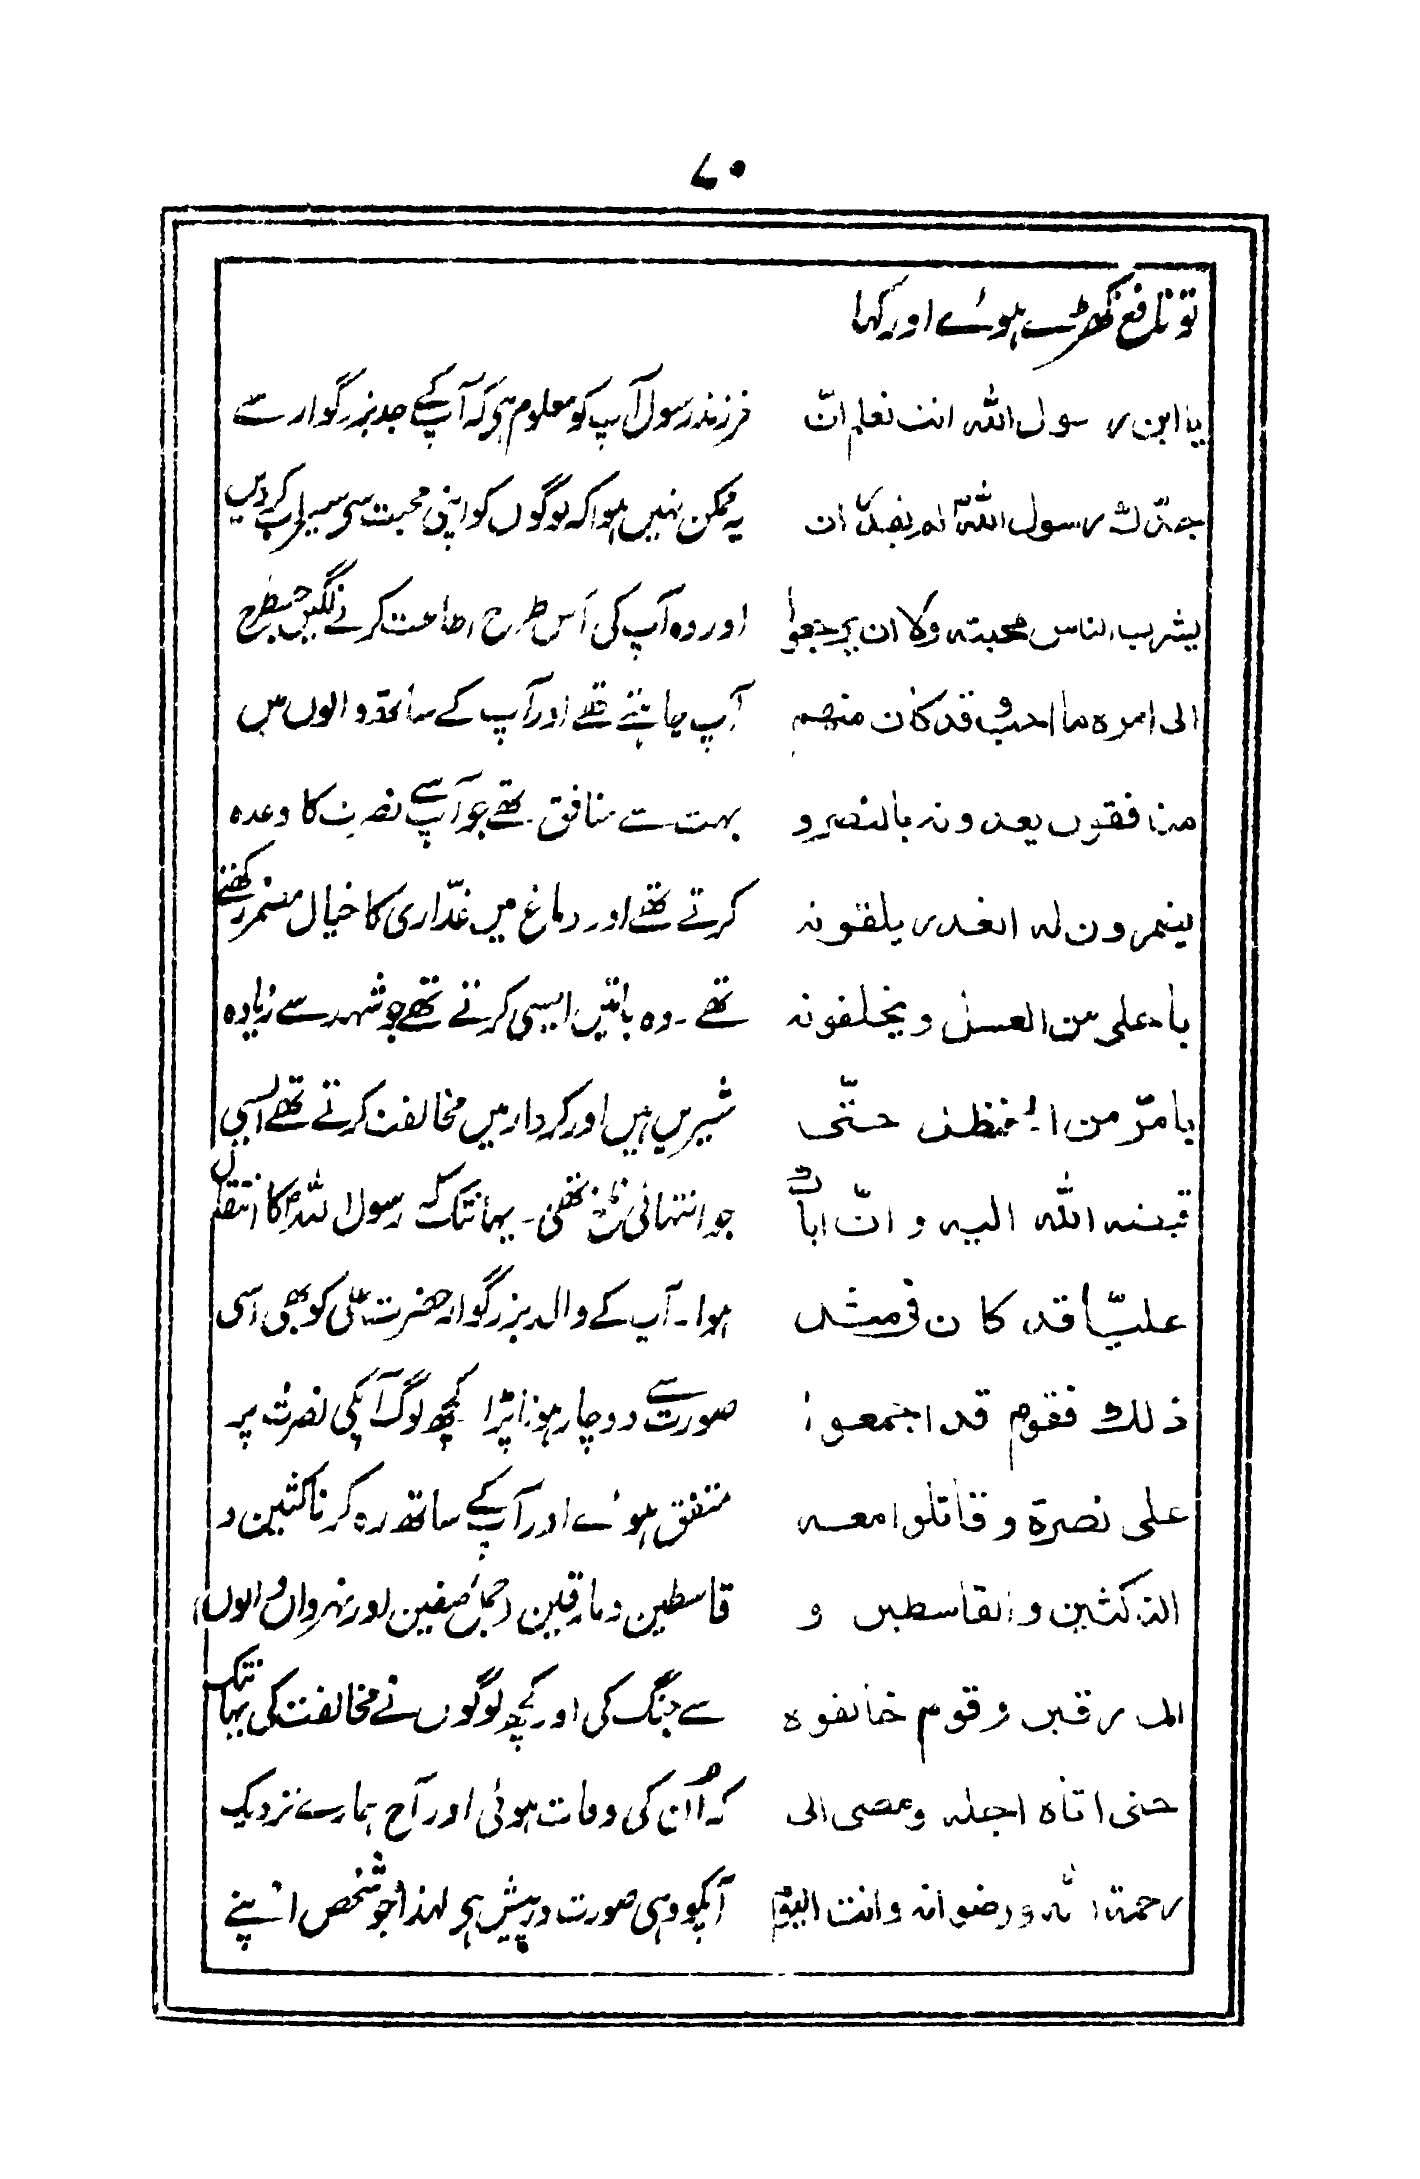 ۷۰
تو نافع کھڑے ہوئے اور کہا
یا ابن رسول اللہ انت تعلم انّ
جدّك رسول اللہ لم یقدر ان
یشرب الناس محبتہ ولا ان یرجعوا
الی امرہ ما احب وقد کان منھم
منافقون یعدونہ بالنصر و
یضمرون لہ الغدر یلقونہ
باحلی من العسل و یخلفونہ
بامرّ من الحنظل حتّی
قبضہ اللہ الیہ و انّ اباك
علیّا قد کان فی مثل
ذلك فقوم قد اجمعوا
علی نصرۃ و قاتلوا معہ
الناکثین و القاسطین و
المارقین وقوم خالفوہ
حتی اتاہ اجلہ ومضی الی
رحمۃ اللہ ورضوانہ وانت الیوم
فرزند رسول آپ کو معلوم ہی کہ آپ کے جد بزرگوار سے
یہ ممکن نہیں ہوا کہ لوگوں کو اپنی محبت سی سیراب کردیں
اور وہ آپ کی اُس طرح اطاعت کرنے لگیں جسطرح
آپ چاہتے تھے اور آپ کے ساتھ والوں میں
بہت سے منافق تھے جو آپ سے نصرت کا وعدہ
کرتے تھے اور دماغ میں غدّاری کا خیال مضمر رکھتے
تھے ۔ وہ باتیں ایسی کرتے تھے جو شہد سے زیادہ
شیریں ہیں اور کردار میں مخالفت کرتے تھے ایسی
جو انتہائی تلخ تھی ۔ یہانتک کہ رسول اللہ کا انتقال
ہوا ۔ آپ کے والد بزرگوار حضرت علی کو بھی اسی
صورت سے دوچار ہونا پڑا کچھ لوگ آپکی نصرت پر
متفق ہوئے اور آپ کے ساتھ رہ کر ناکثین و
قاسطین و مارقین (جمل صفین اور نہروان والوں)
سے جنگ کی اور کچھ لوگوں نے مخالفت کی یہانتک
کہ اُن کی وفات ہوئی اور آج ہمارے نزدیک
آپکو وہی صورت درپیش ہی لہذا جو شخص اپنے